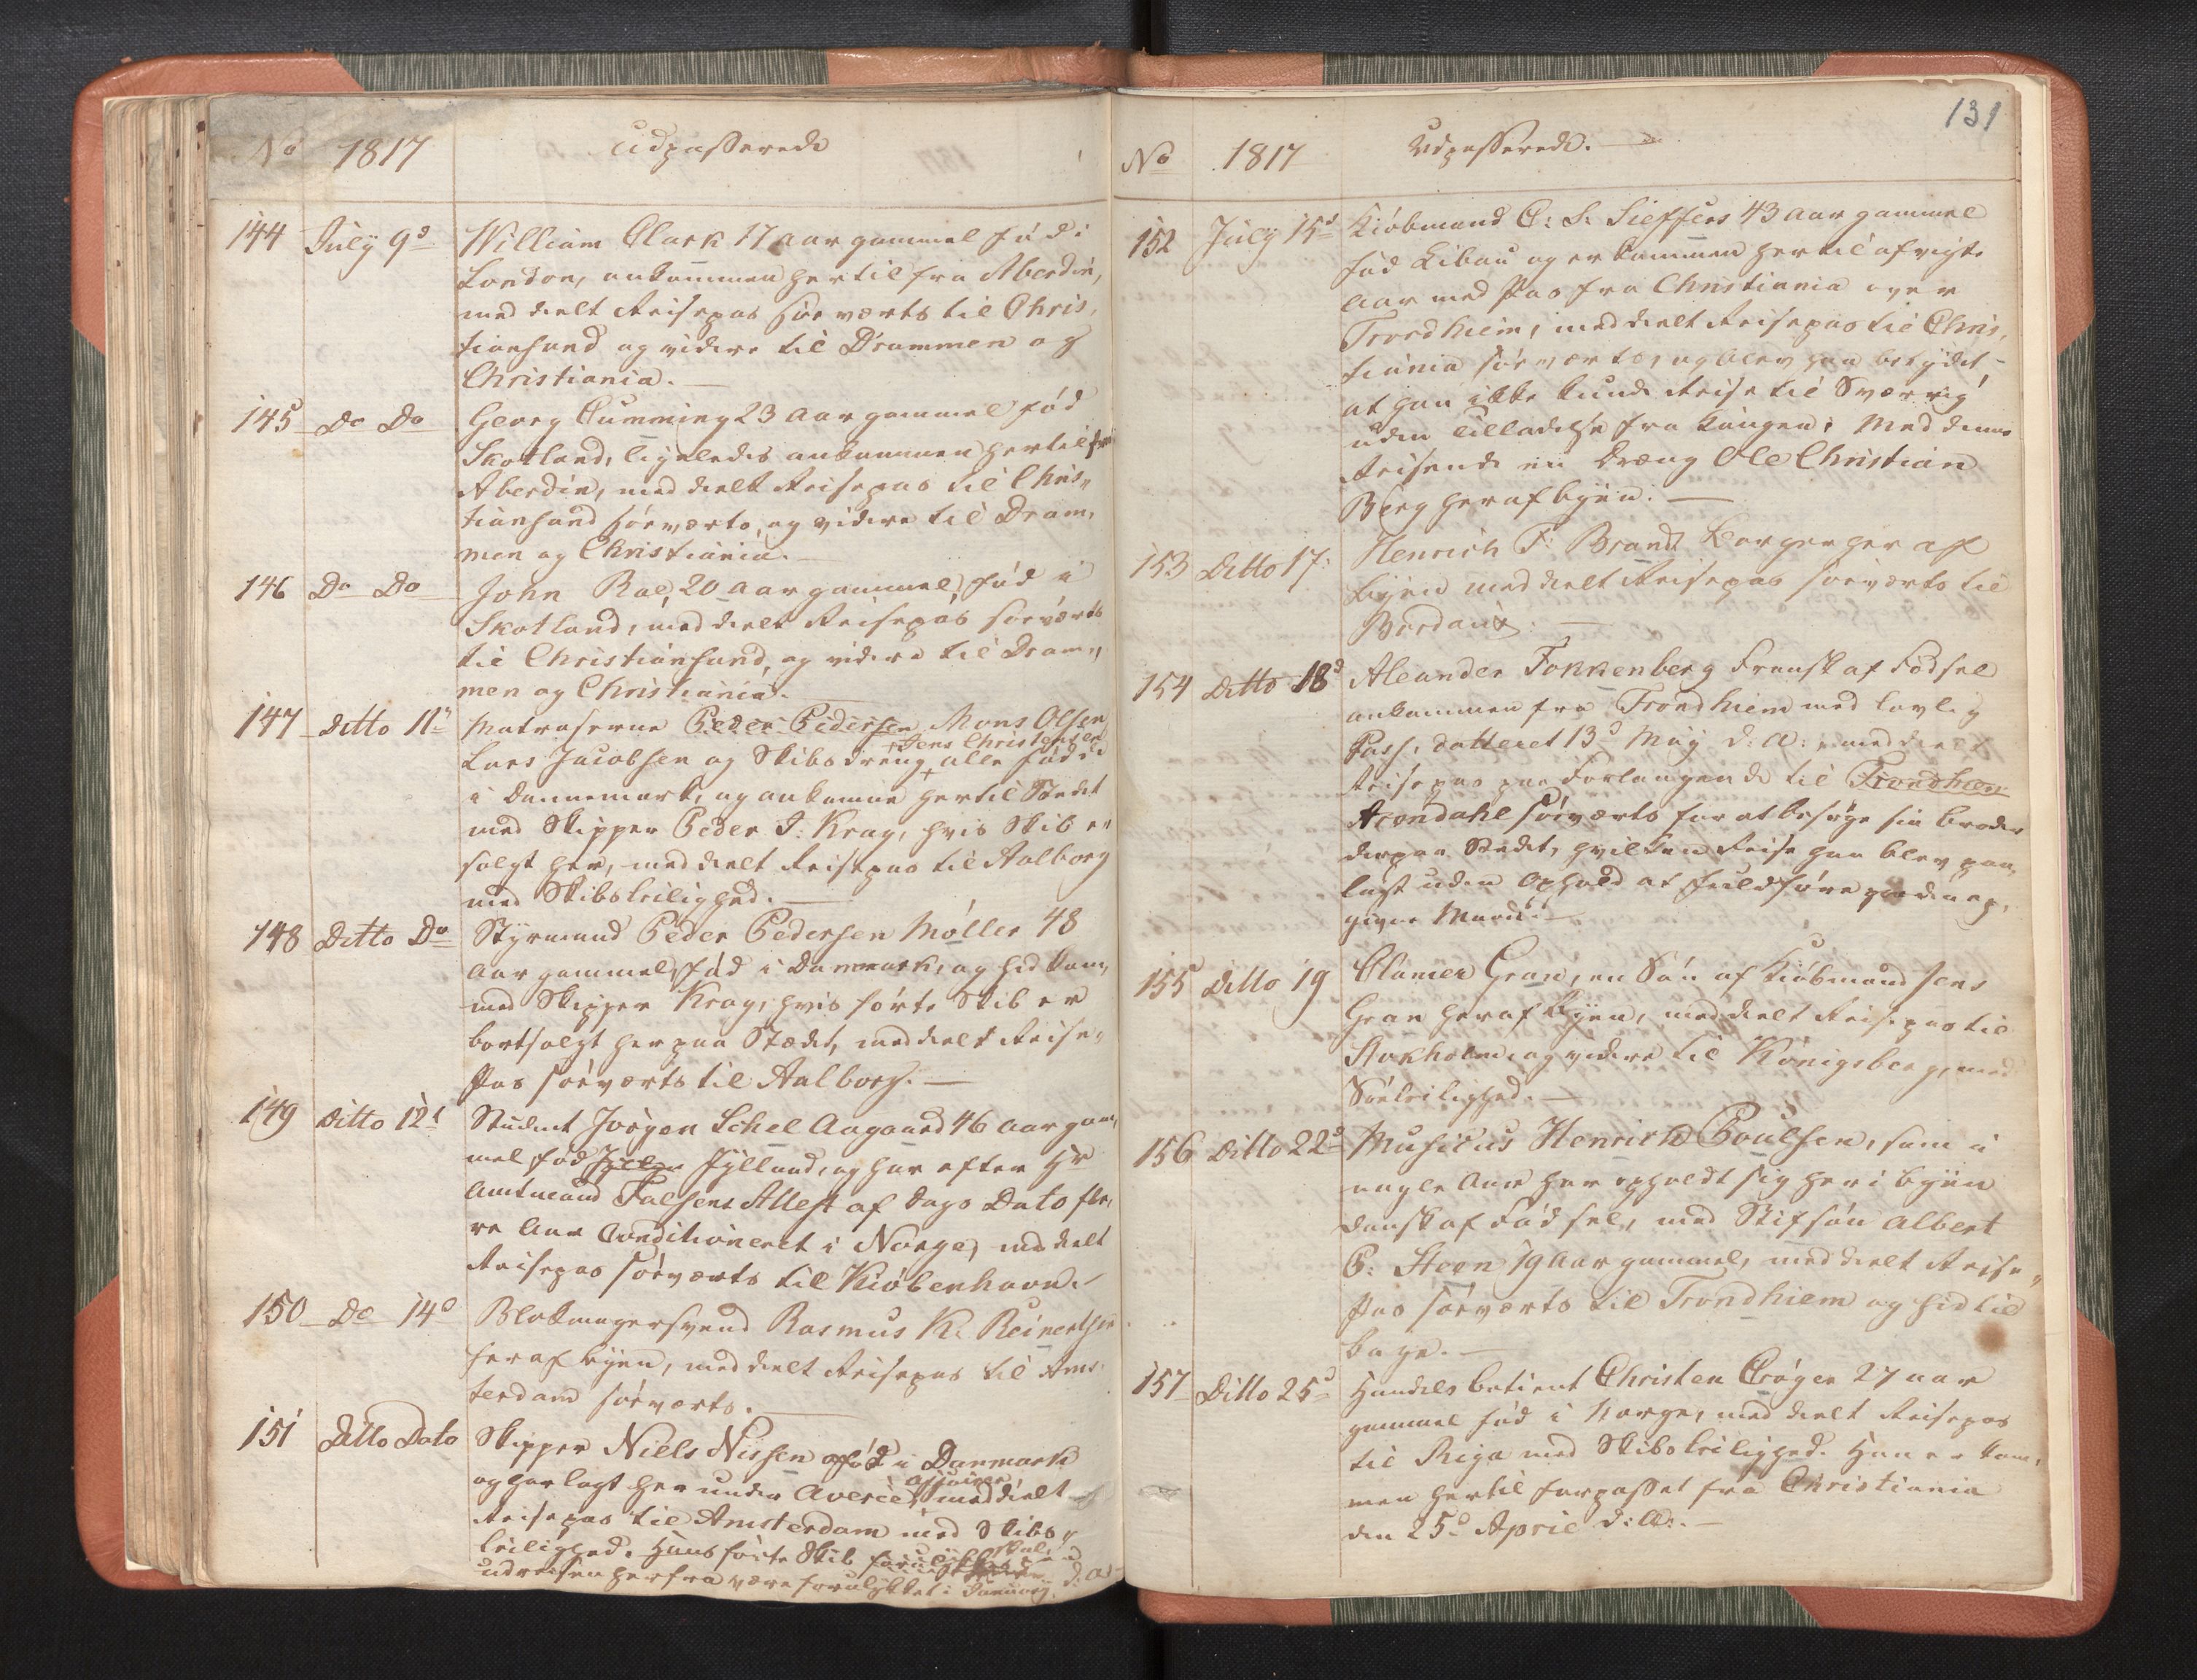 No 1817 Udpasserede
144 July 9d William Clark 17 aar gammel fød i
London, ankommen hertil fra Aberdin,
meddeelt Reisepas søeværts til Chris,
tiansund og videre til Drammen og
Christiania. —
145 Do Do Georg Cumming 23 aar gammel fød
Skotland, ligeledes ankommen hertil fra
Aberdin, meddeelt Reisepas til Chris„
tiansund søeværts, og videre til Dram,
men og Christiania. —
146 Do Do John Rae 20 aar gammel, fød i
Skotland, meddeelt Reisepas søeværts
til Christiansund, og videre til Dram„
men og Christiania. —
147 Ditto 11te Matroserne Peder Pedersen Mons Olsen
+ Jens Christensen
Lars Jacobsen og Skibsdreng + alle fødde
i Dannemark, og ankomne hertil Stedet
med Skipper Peder J. Krag, hvis Skib er
solgt her, meddeelt Reisepas til Aalborg
med Skibsleilighed. —
148 Ditto Do Styrmand Peder Pedersen Møller 48
aar gammel, fød i Danmark, og hidkom,
med Skipper Krag, hvis førte Skib er
bortsolgt her paa Stædet, meddeelt Reise„
Pas søeværts til Aalborg. —
149 Ditto 12t Student Jørgen Schel Aagaard 46 aar gam,
mel, fød Jylland, og har efter Hr
Amtmand Falsens Attest af Dags Dato fle,
re Aar Conditioneret i Norge, meddeelt
Reisepas søeværts til Kiøbenhavn. —
150 Do 14d Blokmagersvend Rasmus K. Reinertsen
her af Byen, meddeelt Reisepas til Ams„
terdam søeværts. —
151 Ditto Dato Skipper Niels Nissen fød i Danmark
og har lagt her under Averie meddeelt
Reisepas til Amsterdam med Skibs„
leilighed. Hans førte Skib skal paa
udreisen herfra være forulykket i Januarij d: A:
131
No 1817 Udpasserede. —
152 July 15d Kiøbmand C: S. Sieffers 43 aar gammel
fød Libau og er kommen hertil afvigte
Aar med Pas fra Christiania over
Trondhiem, meddeelt Reisepas til Chris,
tiania søeværts, og blev han betydet
at han ikke kunde Reise til Sverrig
uden Tilladelse fra Kongen; Med denne
Reisende en Dreng Ole Christian
Berg her af byen. —
153 Ditto 17: Henrich F: Brandt Borger her af
Byen meddeelt Reisepas søeværts til
Bordaux. —
154 Ditto 18d Aleander Fonnenberg Fransk af Fødsel
ankommen fra Trondhiem med lovlig
Pass, datteret 13d May d: A:, meddeelt
Reisepas paa Forlangende til Trondhiem
Arendahl søeværts for at besøge sin broder
der paa Stedet, hvilken Reise han blev paa,
lagt uden Ophold at fuldføre paa den op,
givne Maade. —
155 Ditto 19 Clamer Gran, en Søn af Kiøbmand Jens
Gran her af Byen, meddeelt Reisepas til
Stokholm og videre til Kønigsberg, med
Søeleilighed. —
156 Ditto 22d Musicus Henrich Poulsen, som i
nogle Aar har opholdt sig her i byen
dansk af Fødsel, med Stifsøn Albert
C: Steen 19 Aar gammel, meddeelt Reise„
Pas søeværts til Trondhiem og hid til
bage. —
157 Ditto 25d Handelsbetient Christen Crøger 27 aar
gammel fød i Norge, meddeelt Reisepas
til Riga med Skibsleilighed. Han er kom,
men hertil forpasset fra Christiania
den 25d April d: A:. —